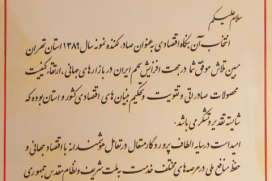 سلام علیکم
انتخاب آن بنگاه اقتصادی به عنوان صادر کننده نمونه سال ۱۳۸۹ استان تهران
مبین تلاش موفق شما در جهت افزایش سهم ایران در بازارهای جهانی، ارتقاء کیفیت
محصولات صادراتی و تقویت و تحکیم بنیان های اقتصادی کشور و استان بوده که
شایسته تقدیر و تشکر می باشد.
امید است در سایه الطاف پروردگار متعال در تعامل هوشمندانه با اقتصاد جهانی و
حفظ منافع ملی در عرصه های مختلف خدمت به ملت شریف و نظام مقدس جمهوری